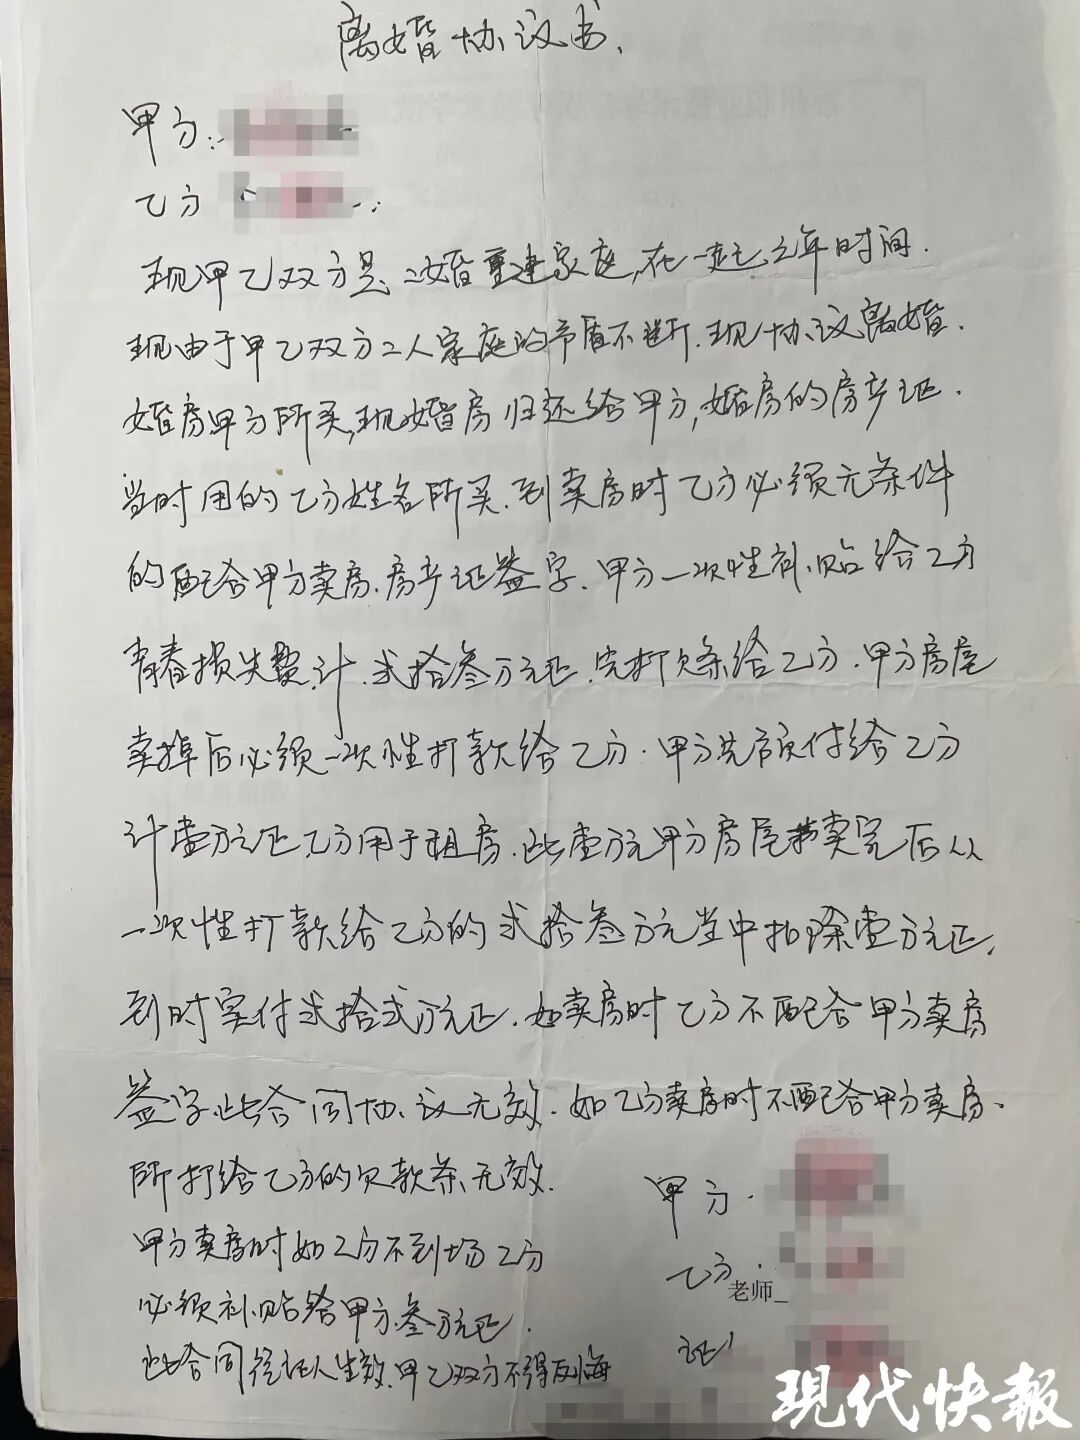 离婚协议书.
甲方:
乙方
现甲乙双方是二婚重建家庭,在一起三年时间.
现由于甲乙双方二人家庭的矛盾不断.现协议离婚.
婚房甲方所买,现婚房归还给甲方,婚房的房产证.
当时用的乙方姓名所买.到卖房时乙方必须无条件
的配合甲方卖房.房产证签字.甲方一次性补贴给乙方
青春损失费,计.贰拾叁万元正.先打欠条给乙方.甲方房屋
卖掉后必须一次性打款给乙方.甲方先预付给乙方
计壹万元正,乙方用于租房.此壹万元甲方房屋卖完后从
一次性打款给乙方的贰拾叁万元当中扣除壹万元正.
到时实付贰拾贰万元正.如卖房时乙方不配合甲方卖房
签字此合同协议无效.如乙方卖房时不配合甲方卖房.
所打给乙方的欠款条无效.
甲方卖房时如乙方不到场乙方
必须补贴给甲方叁万元正.
此合同经证人生效.甲乙双方不得反悔
甲方.
乙方.
老师_
证
现代快報